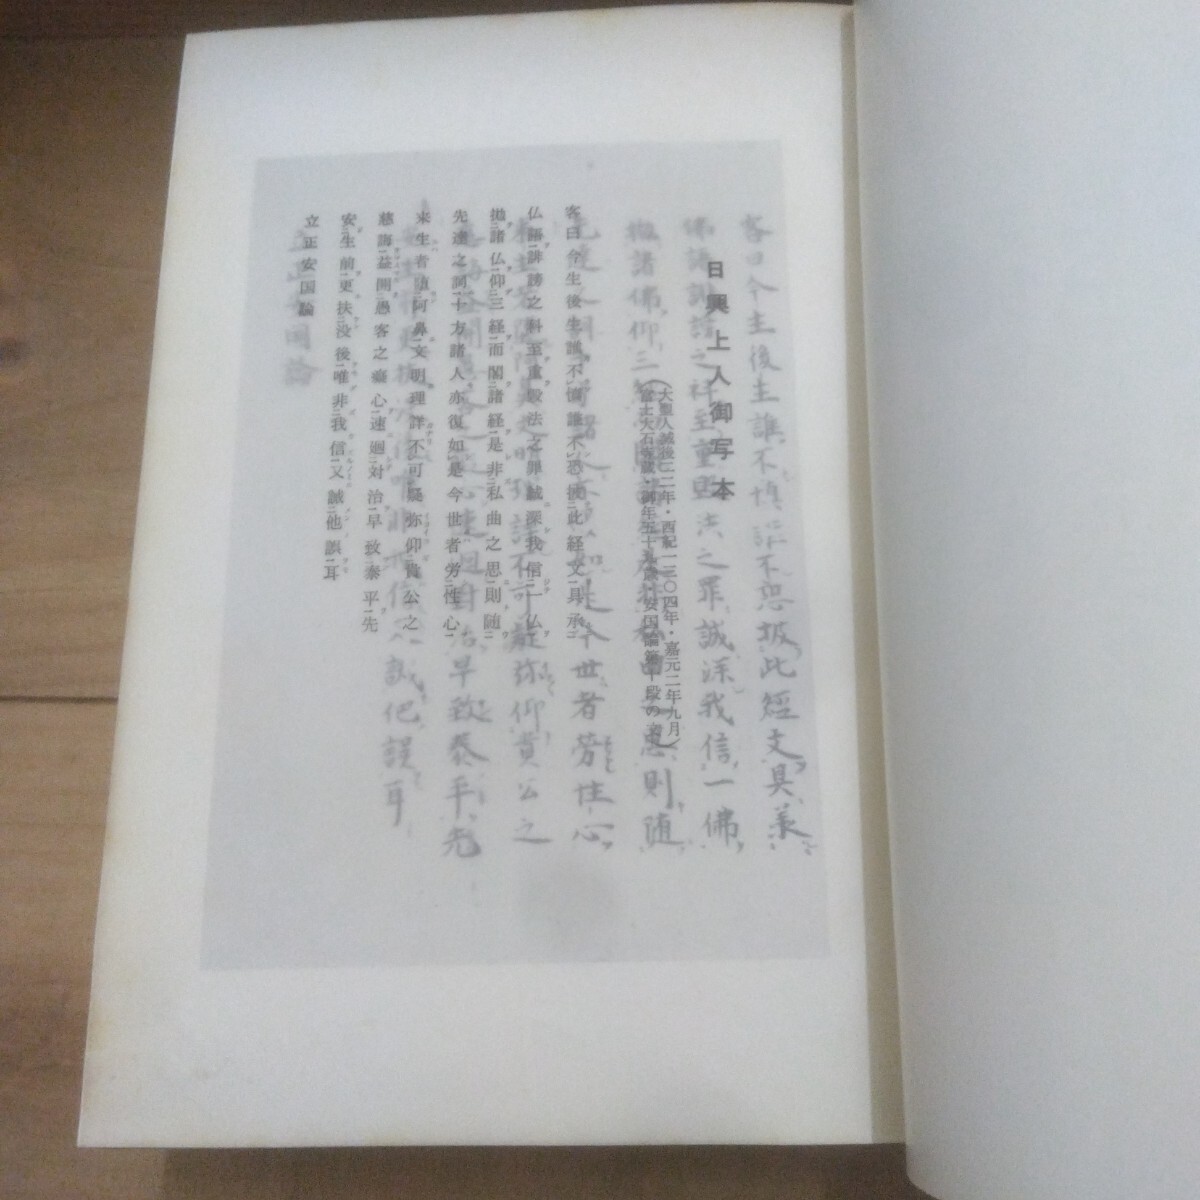 日興上人御写本
(大聖人滅後二二年・西紀一三〇四年・嘉元二年九月)
(富士大石寺蔵・御年五十九歳・安国論第十段の文)
客曰今生後生誰不慎誰不恐披此経文具承
仏語誹謗之科至重毀法之罪誠深我信一仏
抛諸仏仰三経而閣諸経是非私曲之思則随
先達之詞十方諸人亦復如是今世者労性心
来生者堕阿鼻文明理詳不可疑弥仰貴公之
慈誨益開愚客之癡心速廻対治早致泰平先
安生前更扶没後唯非我信又誡他誤耳
立正安国論